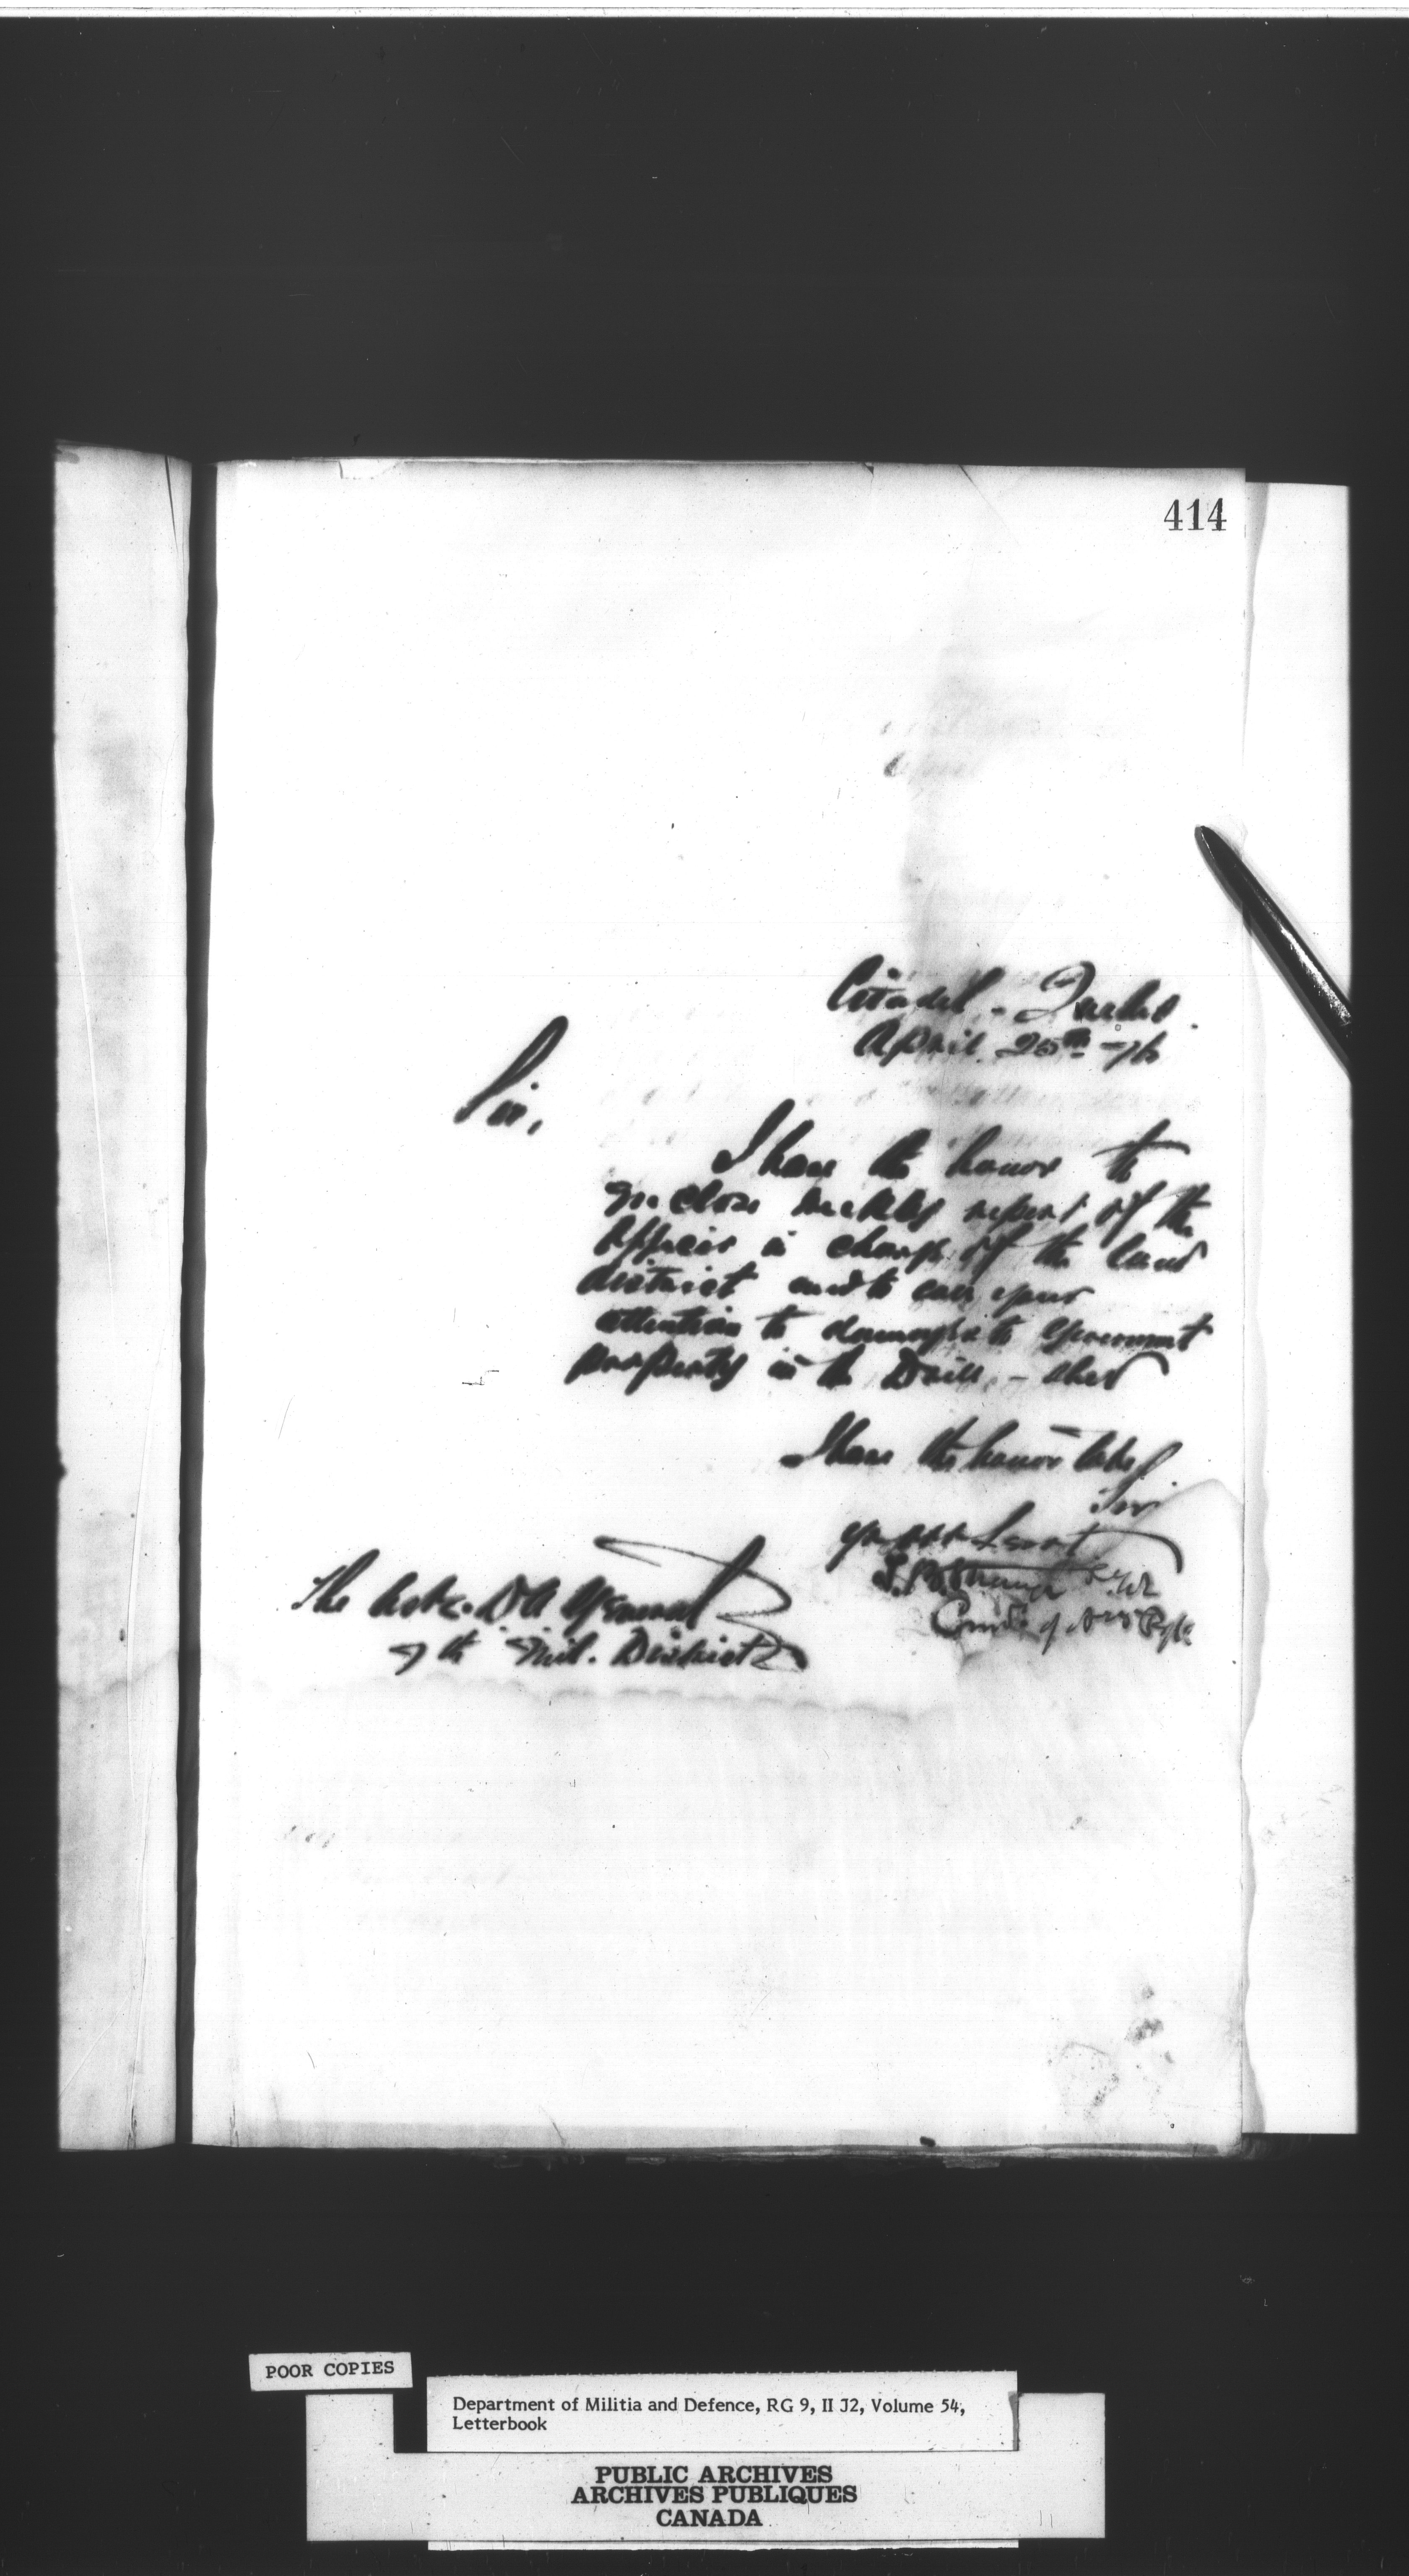 414
Citadel - Quebec.
April 25th -76
Sir,
I have the honor to
Enclose weekly report of the
Officer in charge of the land
district and to call your
attention to damages to Government
property in the Drill - shed
I have the honor to be
Sir
Yr obt Servt
T. B. Strange
Comdt of
The Actg. DA General
7th Mil. District
POOR COPIES
Department of Militia and Defence, RG 9, II J2, Volume 54,
Letterbook
PUBLIC ARCHIVES
ARCHIVES PUBLIQUES
CANADA